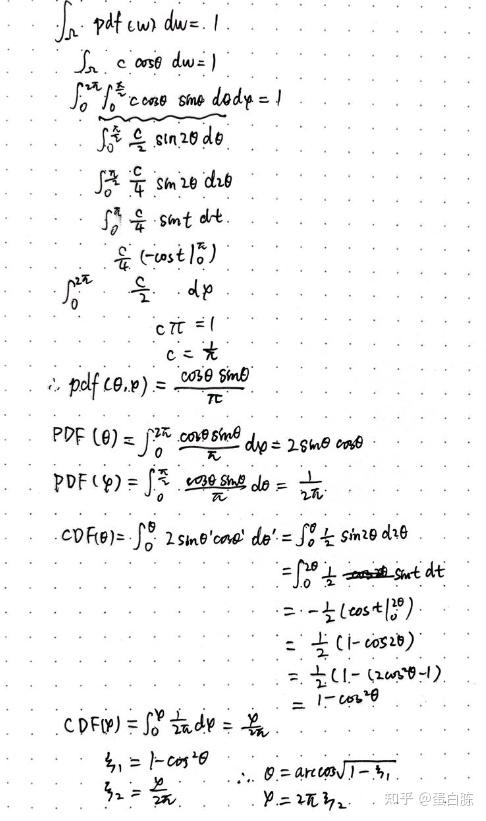 ∫_Ω pdf(w) dw = 1
∫_Ω c cosθ dw = 1
∫_0^{2π} ∫_0^{π/2} c cosθ sinθ dθdφ = 1
∫_0^{π/2} c/2 sin2θ dθ
∫_0^{π/2} c/4 sin2θ d2θ
∫_0^π c/4 sint dt
c/4 (-cost|_0^π)
∫_0^{2π} c/2 dφ
cπ = 1
c = 1/π
∴ pdf(θ,φ) = cosθ sinθ/π
PDF(θ) = ∫_0^{2π} cosθ sinθ/π dφ = 2sinθ cosθ
PDF(φ) = ∫_0^{π/2} cosθ sinθ/π dθ = 1/2π
CDF(θ) = ∫_0^θ 2sinθ'cosθ' dθ' = ∫_0^θ 1/2 sin2θ d2θ
= ∫_0^{2θ} 1/2 sint dt
= -1/2 (cost|_0^{2θ})
= 1/2 (1-cos2θ)
= 1/2 (1-(2cos²θ-1)
= 1-cos²θ
CDF(φ) = ∫_0^φ 1/2π dφ = φ/2π
ξ₁ = 1-cos²θ ∴ θ = arccos√(1-ξ₁)
ξ₂ = φ/2π φ = 2π ξ₂
知乎 @蛋白胨